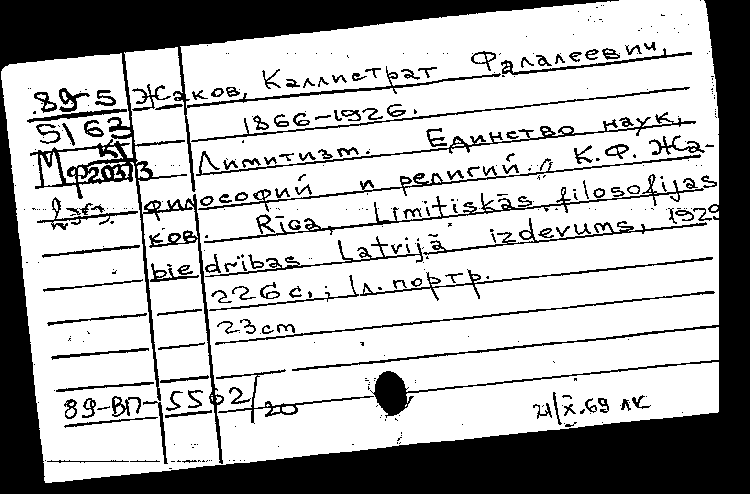 89-5 Жаков, Каллистрат Фалалеевич,
5162 1866-1926.
Мф К1 Лимитизм. Единство наук,
философий и религий. К.Ф. Жа-
ков. Rīga, Limitiskās filosofijas
biedrības Latvijā izdevums, 1929
226 с.; 1 л. портр.
23 cm
89-ВП-5562/20
21/X.69 ЛК